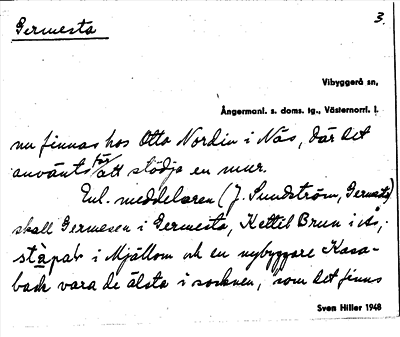 Germesta
3.
Vibyggerå sn,
Ångermanl. s. doms. tg., Västernorrl. l.
nu finnas hos Otto Nordin i Näs, där det
använts för att stödja en mur.
Enl. meddelaren (J. Sundström, Germesta)
skall Germesen i Germesta, Kettil Brun i Ås,
stapar i Mjällom och en nybyggare Kasa-
back vara de älsta i socknen, som det finns
Sven Hiller 1948